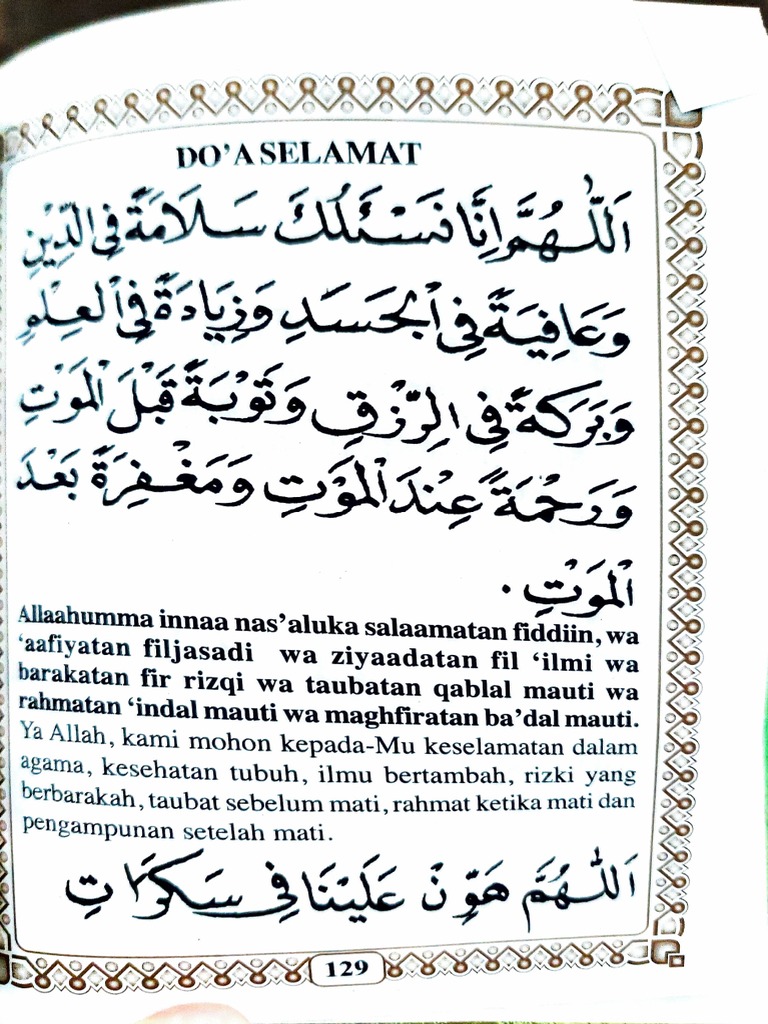 DO'A SELAMAT
اَللّٰهُمَّ اِنَّا نَسْئَلُكَ سَلَامَةً فِى الدِّيْنِ
وَعَافِيَةً فِى الْجَسَدِ وَزِيَادَةً فِى الْعِلْمِ
وَبَرَكَةً فِى الرِّزْقِ وَتَوْبَةً قَبْلَ الْمَوْتِ
وَرَحْمَةً عِنْدَ الْمَوْتِ وَمَغْفِرَةً بَعْدَ
الْمَوْتِ .
Allaahumma innaa nas'aluka salaamatan fiddiin, wa
'aafiyatan filjasadi wa ziyaadatan fil 'ilmi wa
barakatan fir rizqi wa taubatan qablal mauti wa
rahmatan 'indal mauti wa maghfiratan ba'dal mauti.
Ya Allah, kami mohon kepada-Mu keselamatan dalam
agama, kesehatan tubuh, ilmu bertambah, rizki yang
berbarakah, taubat sebelum mati, rahmat ketika mati dan
pengampunan setelah mati.
اَللّٰهُمَّ هَوِّنْ عَلَيْنَا فِى سَكَرَاتِ
129